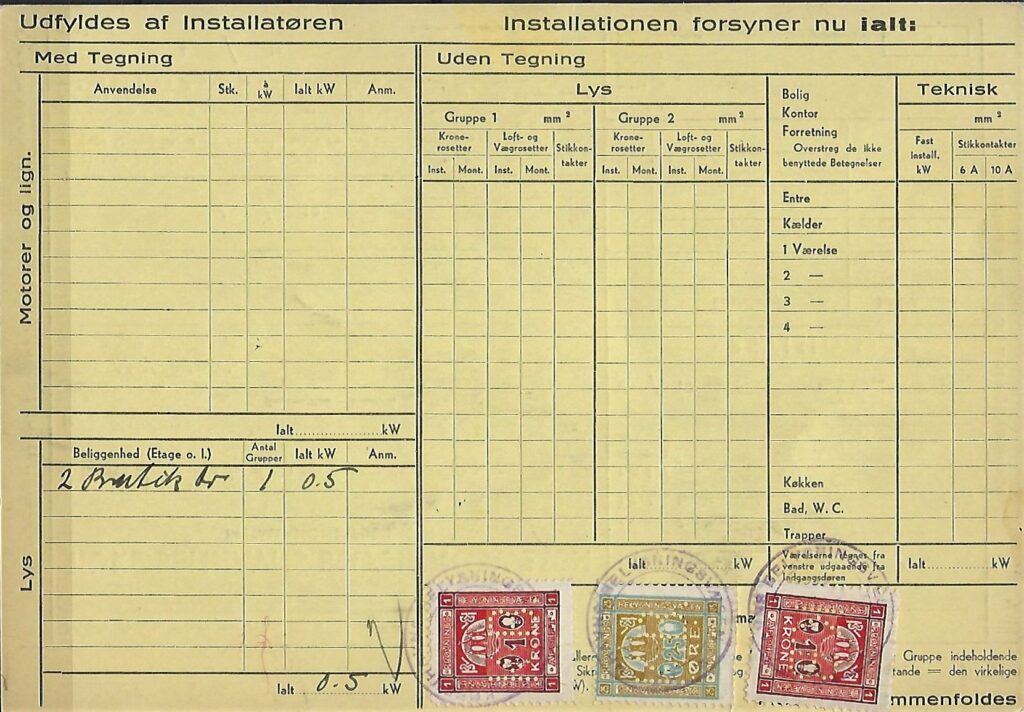 Udfyldes af Installatøren
Installationen forsyner nu ialt:
Med Tegning
Uden Tegning
Motorer og lign.
Anvendelse Stk. à kW Ialt kW Anm.
Ialt..................kW
Lys
Beliggenhed (Etage o. l.) Antal Grupper Ialt kW Anm.
2 1 0.5
Ialt 0.5 kW
Lys
Gruppe 1 mm²
Gruppe 2 mm²
Krone-rosetter Loft- og Vægrosetter Stikkon-takter
Krone-rosetter Loft- og Vægrosetter Stikkon-takter
Inst. Mont. Inst. Mont.
Inst. Mont. Inst. Mont.
Bolig
Kontor
Forretning
Overstreg de ikke
benyttede Betegnelser
Teknisk
mm²
Fast install. kW
Stikkontakter
6 A 10 A
Entre
Kælder
1 Værelse
2 —
3 —
4 —
Køkken
Bad, W. C.
Trapper
Værelserne tegnes fra
venstre udgaaende fra
Indgangsdøren
Ialt kW
Ialt kW
1 KRONE 1
ØRE
1 KRONE 1
Gruppe indeholdende
tande = den virkelige
mmenfoldes